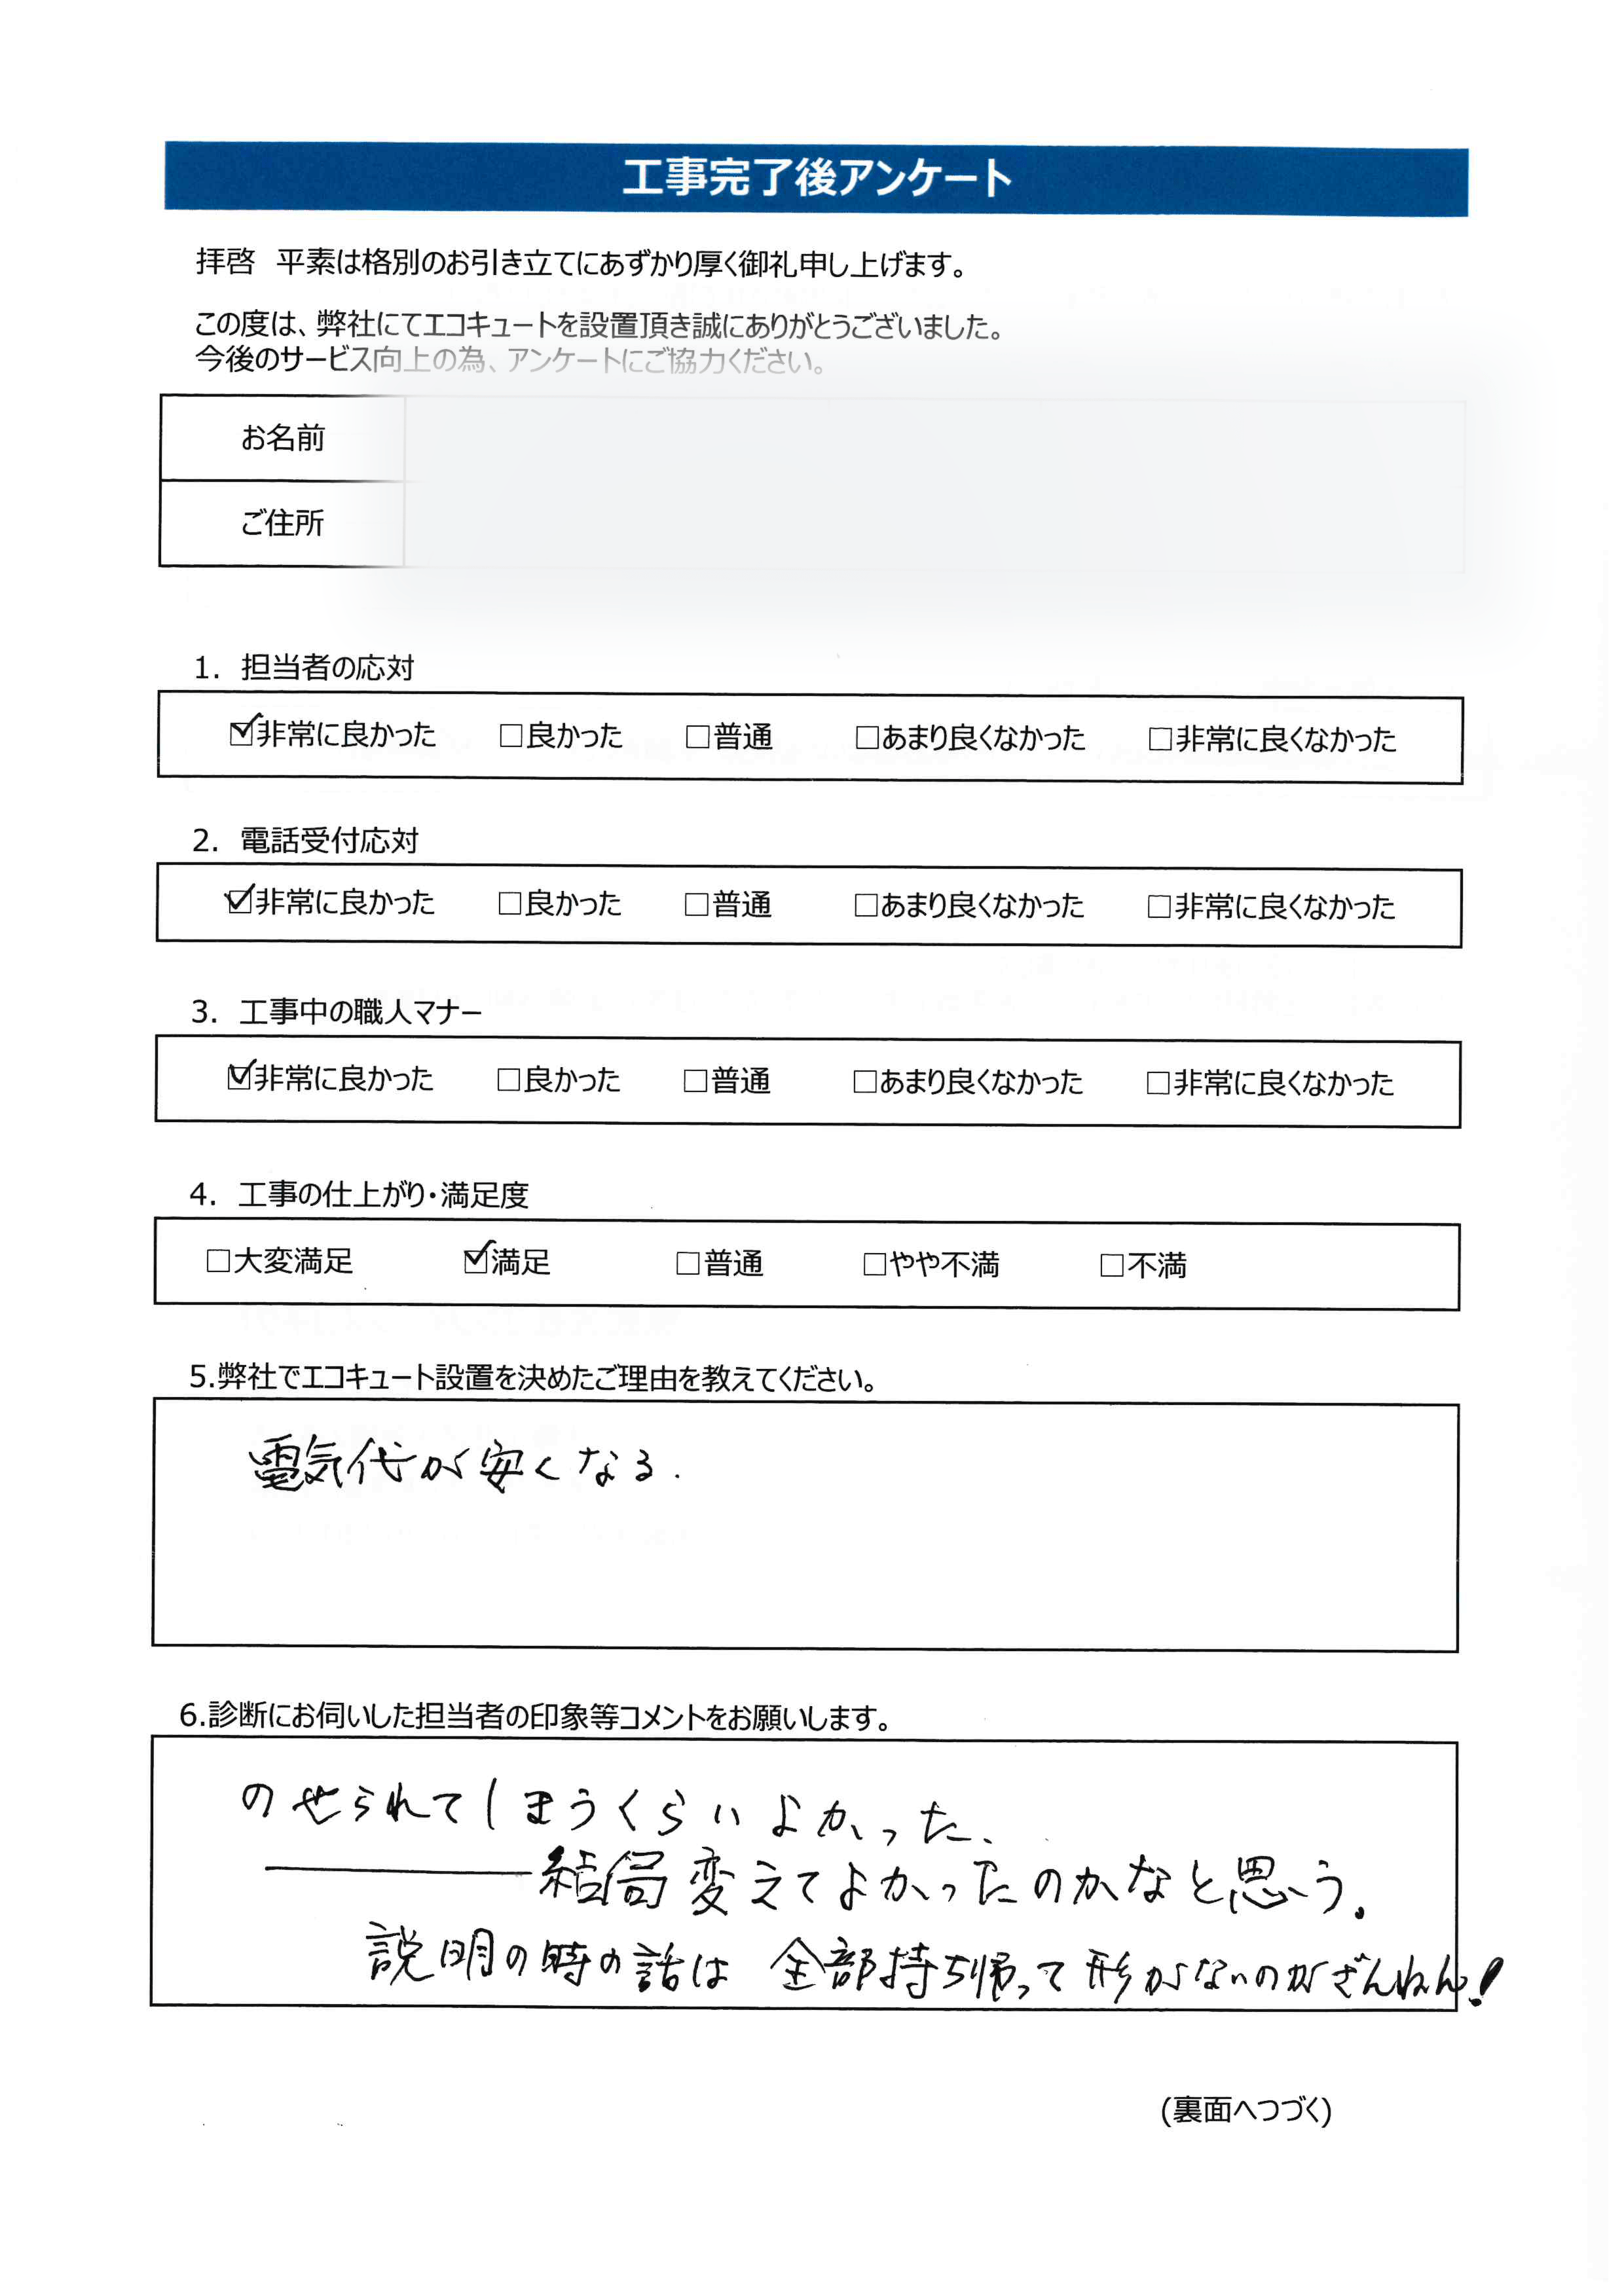 工事完了後アンケート
拝啓　平素は格別のお引き立てにあずかり厚く御礼申し上げます。
この度は、弊社にてエコキュートを設置頂き誠にありがとうございました。
今後のサービス向上の為、アンケートにご協力ください。
お名前
ご住所
1.　担当者の応対
☑非常に良かった　□良かった　□普通　□あまり良くなかった　□非常に良くなかった
2.　電話受付応対
☑非常に良かった　□良かった　□普通　□あまり良くなかった　□非常に良くなかった
3.　工事中の職人マナー
☑非常に良かった　□良かった　□普通　□あまり良くなかった　□非常に良くなかった
4.　工事の仕上がり・満足度
□大変満足　☑満足　□普通　□やや不満　□不満
5.弊社でエコキュート設置を決めたご理由を教えてください。
電気代が安くなる.
6.診断にお伺いした担当者の印象等コメントをお願いします。
のせられてしまうくらいよかった、
――結局変えてよかったのかなと思う。
説明の時の話は 全部持ち帰って形がないのがざんねん!
(裏面へつづく)